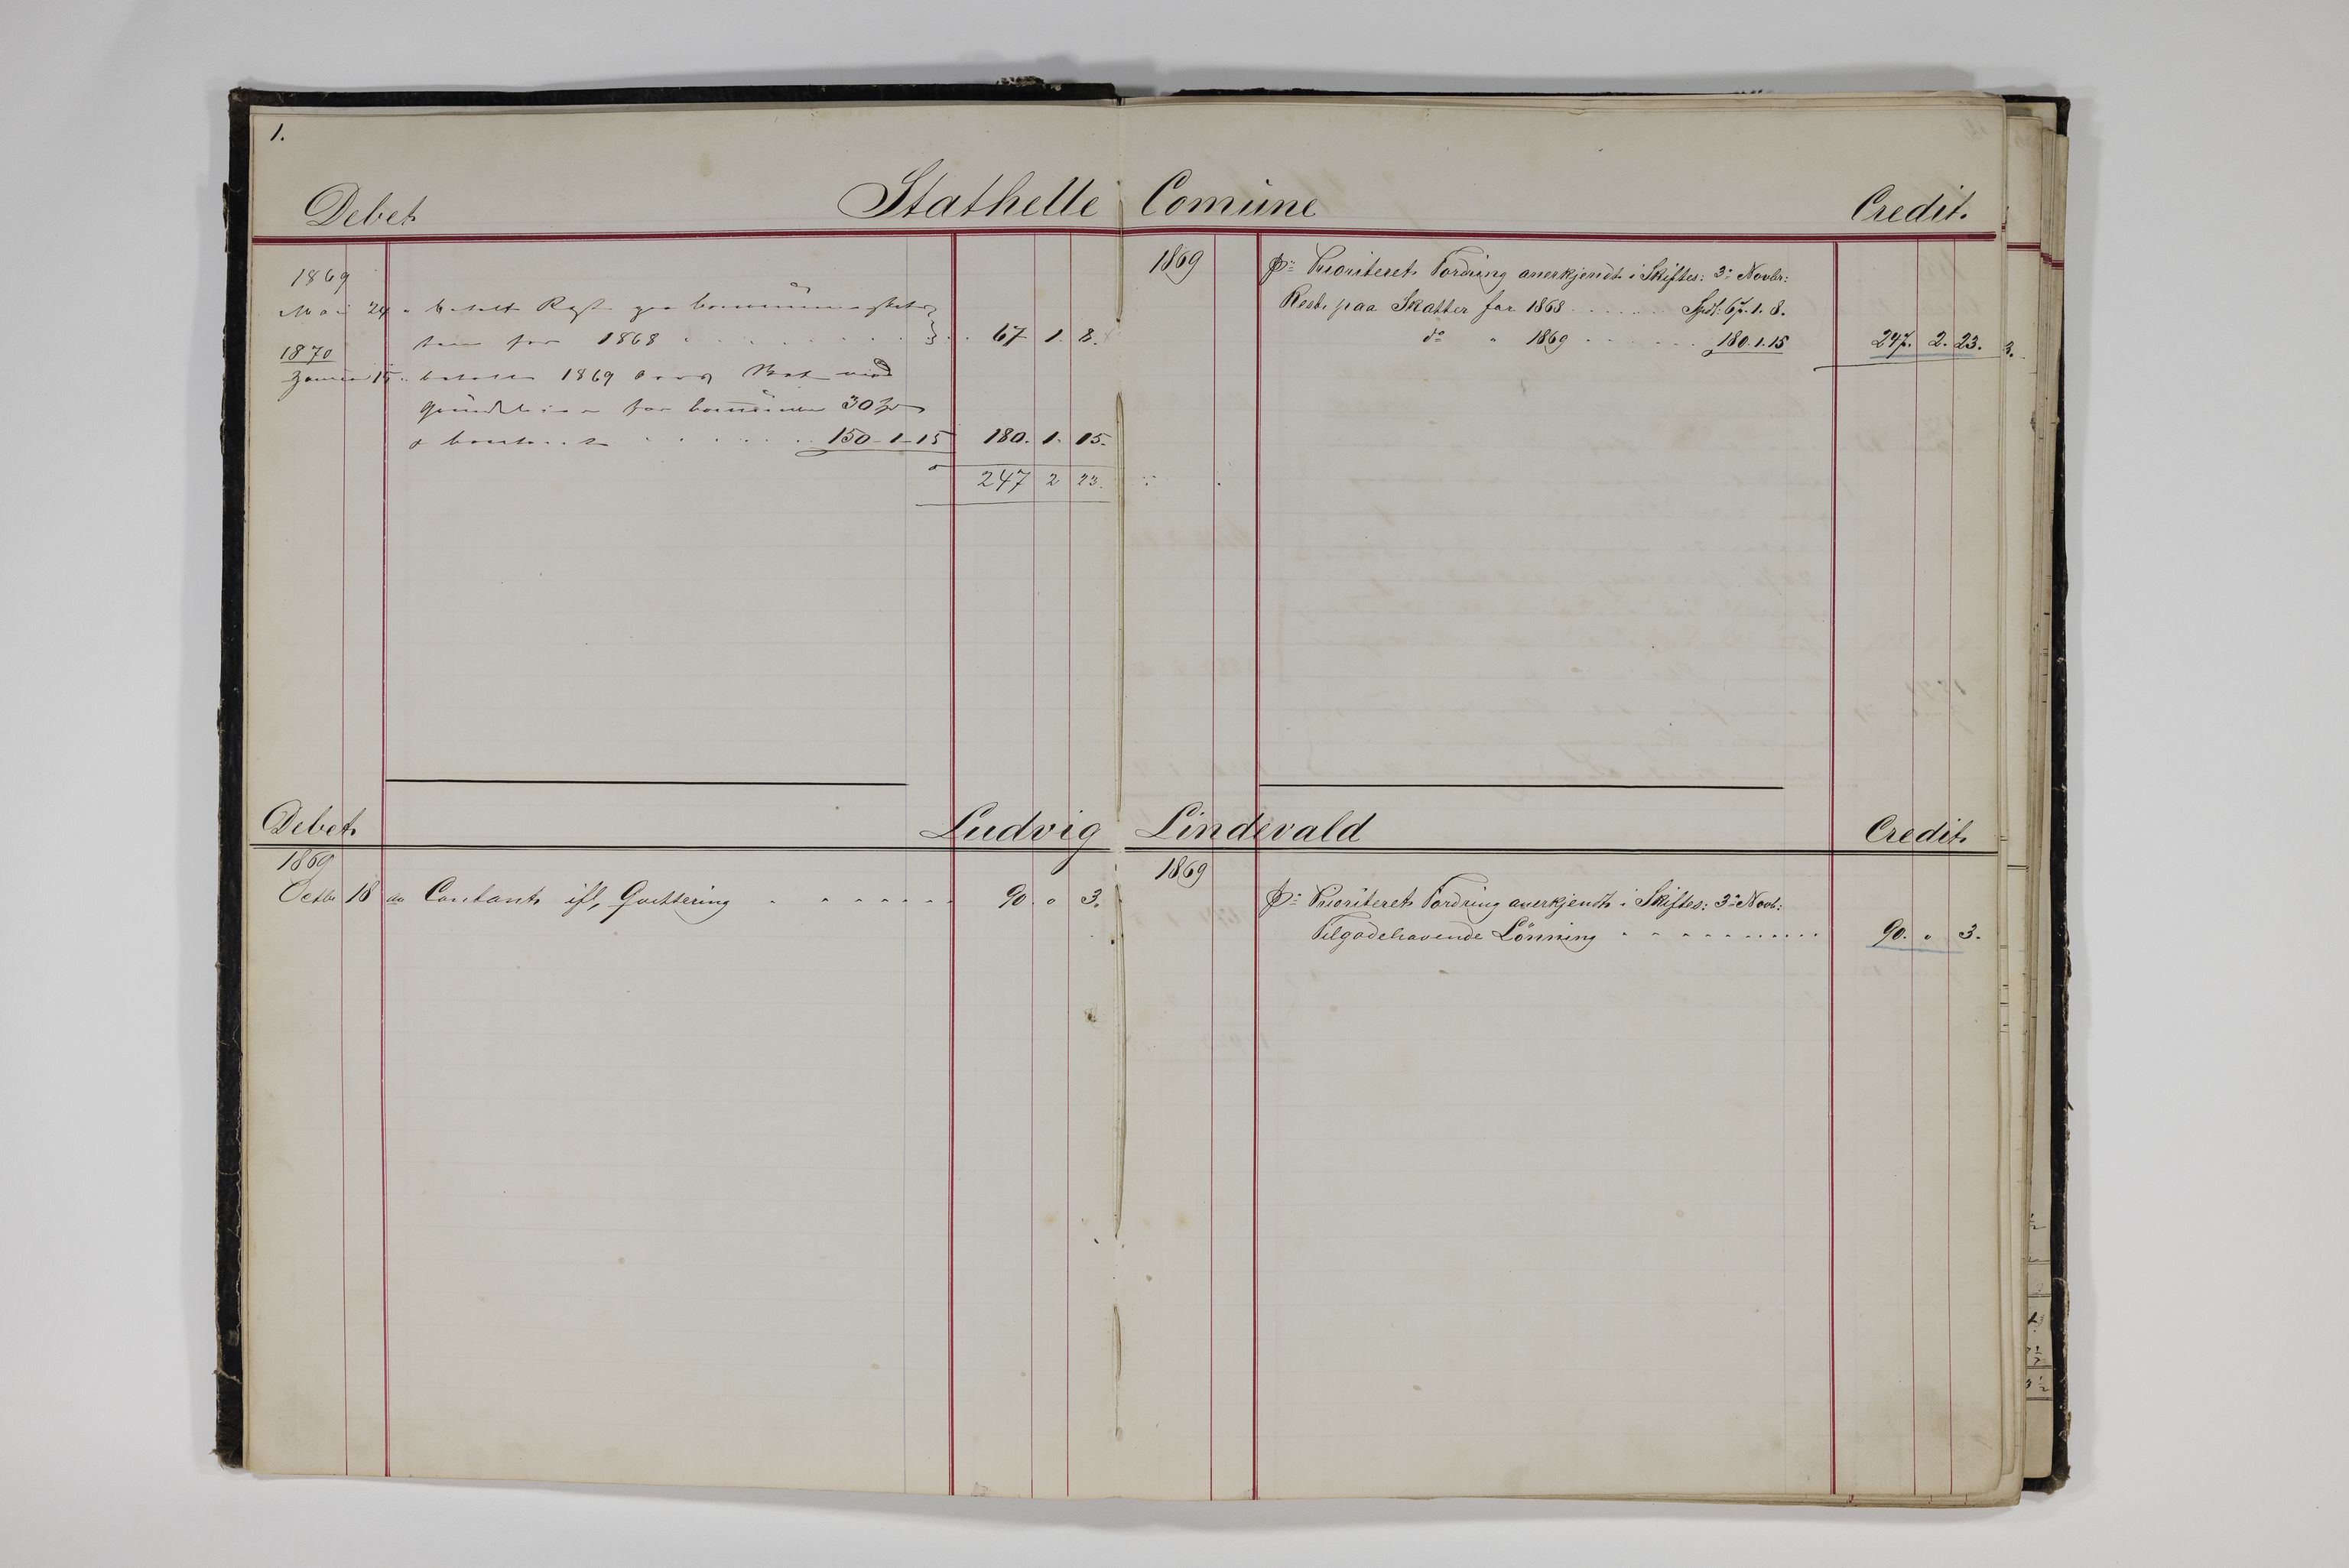 1.
Debet Stathelle Comüne Credit.
1869
Mai 24 " betalt Rest paa Commüneskat
for 1868 . . . . . . . . 67. 1. 8.
1870
Januar 15 " betalt 1869 Rest med
for Commünen 30
150-1-15 180. 1. 15.
247 2 23.
1869 pr: Prioriteret Fordring anerkjendt i Skiftes: 3: Novbr:
Rest. paa Skatter for 1868 . . . . . . Spd: 67. 1. 8.
do " 1869 . . . . . . 180. 1. 15 247. 2. 23.
3.
Debet Ludvig Lindevald Credit.
1869
Octbr 18 an Contant ifl, Qvittering . . . . . . . 90. " 3.
1869
pr: Prioriteret Fordring anerkjendt i Skiftes: 3: Novb:
Tilgodehavende Lönning . . . . . . . . . . 90. " 3.